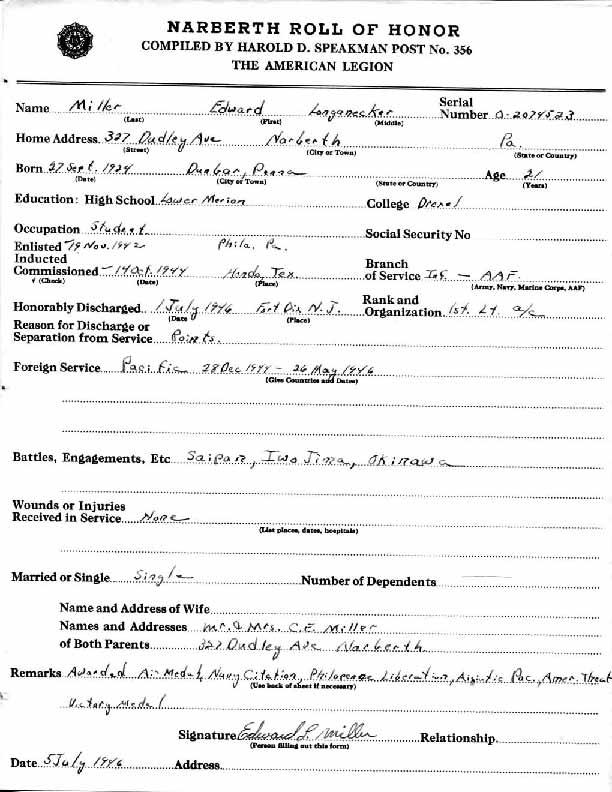 NARBERTH ROLL OF HONOR
COMPILED BY HAROLD D. SPEAKMAN POST No. 356
THE AMERICAN LEGION
Name Miller Edward Longanecker Serial Number O-2074523
(Last) (First) (Middle)
Home Address 327 Dudley Ave Narberth Pa.
(Street) (City or Town) (State or Country)
Born 27 Sept. 1924 Dunbar, Penna Age 21
(Date) (City or Town) (State or Country) (Years)
Education: High School Lower Merion College Drexel
Occupation Student Social Security No
Enlisted 19 Nov. 1942 Phila. Pa.
Inducted
Commissioned 14 Oct. 1944 Hondo, Tex. Branch of Service - AAF.
✓ (Check) (Date) (Place) (Army, Navy, Marine Corps, AAF)
Honorably Discharged 1 July 1946 Fort Dix N.J. Rank and Organization 1st. Lt. a/c
(Date) (Place)
Reason for Discharge or
Separation from Service Points.
Foreign Service Pacific 28 Dec 1944 - 26 May 1946
(Give Countries and Dates)
Battles, Engagements, Etc Saipan, Iwo Jima, Okinawa
Wounds or Injuries
Received in Service None
(List places, dates, hospitals)
Married or Single Single Number of Dependents
Name and Address of Wife
Names and Addresses Mr. & Mrs. C.E. Miller
of Both Parents 327 Dudley Ave Narberth
Remarks Awarded Air Medal, Navy Citation, Liberation, Pac, Amer. Theat
(Use back of sheet if necessary)
Victory Medal
Signature Edward L. Miller Relationship
(Person filling out this form)
Date 5 July 1946 Address